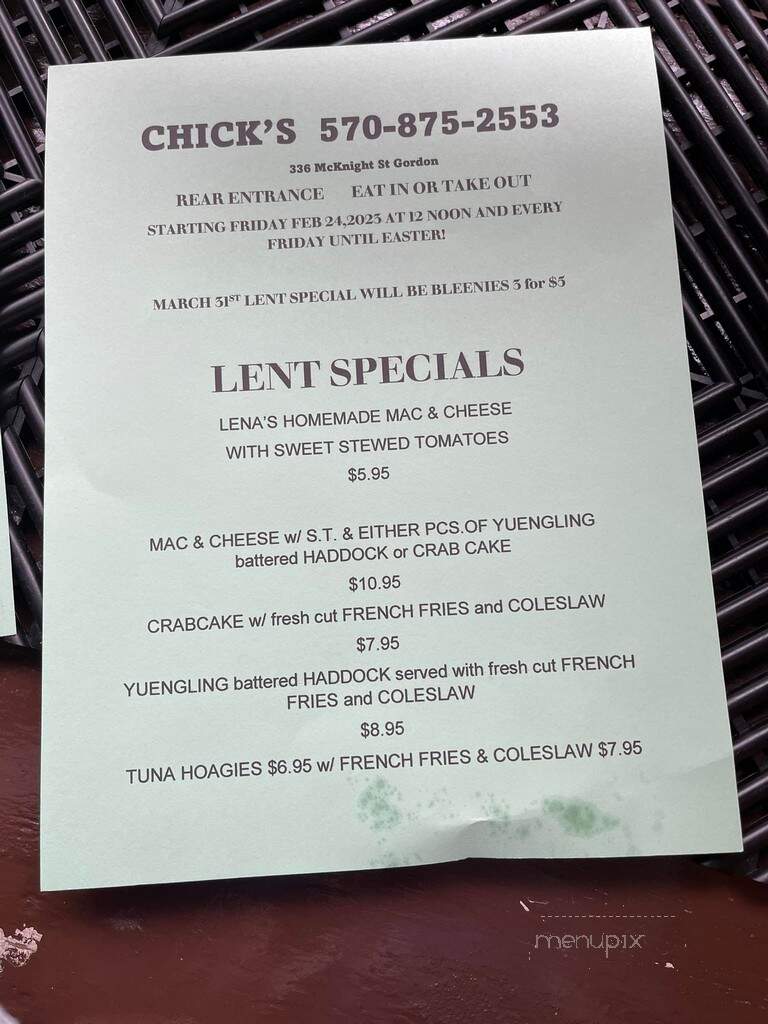 CHICK'S 570-875-2553
336 McKnight St Gordon
REAR ENTRANCE EAT IN OR TAKE OUT
STARTING FRIDAY FEB 24,2023 AT 12 NOON AND EVERY
FRIDAY UNTIL EASTER!
MARCH 31ST LENT SPECIAL WILL BE BLEENIES 3 for $5
LENT SPECIALS
LENA'S HOMEMADE MAC & CHEESE
WITH SWEET STEWED TOMATOES
$5.95
MAC & CHEESE w/ S.T. & EITHER PCS.OF YUENGLING
battered HADDOCK or CRAB CAKE
$10.95
CRABCAKE w/ fresh cut FRENCH FRIES and COLESLAW
$7.95
YUENGLING battered HADDOCK served with fresh cut FRENCH
FRIES and COLESLAW
$8.95
TUNA HOAGIES $6.95 w/ FRENCH FRIES & COLESLAW $7.95
menupix